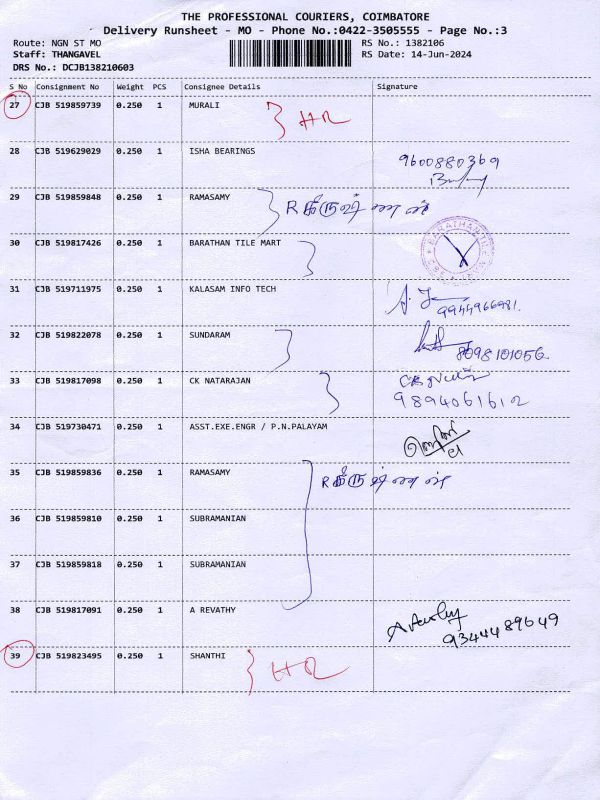 THE PROFESSIONAL COURIERS, COIMBATORE
Delivery Runsheet - MO - Phone No.:0422-3505555 - Page No.:3
Route: NGN ST MO
RS No.: 1382106
Staff: THANGAVEL
RS Date: 14-Jun-2024
DRS No.: DCJB138210603
S No Consignment No Weight PCS Consignee Details Signature
27 CJB 519859739 0.250 1 MURALI
28 CJB 519629029 0.250 1 ISHA BEARINGS 9600880369
29 CJB 519859848 0.250 1 RAMASAMY
30 CJB 519817426 0.250 1 BARATHAN TILE MART
31 CJB 519711975 0.250 1 KALASAM INFO TECH
9944966981.
32 CJB 519822078 0.250 1 SUNDARAM
8098101056
33 CJB 519817098 0.250 1 CK NATARAJAN
9894061612
34 CJB 519730471 0.250 1 ASST.EXE.ENGR / P.N.PALAYAM
35 CJB 519859836 0.250 1 RAMASAMY
36 CJB 519859810 0.250 1 SUBRAMANIAN
37 CJB 519859818 0.250 1 SUBRAMANIAN
38 CJB 519817091 0.250 1 A REVATHY
9344489649
39 CJB 519823495 0.250 1 SHANTHI